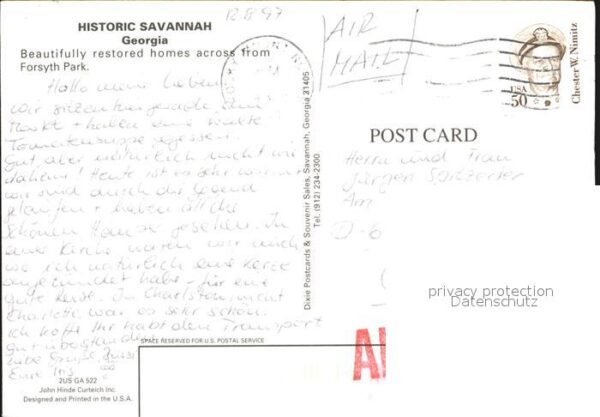 HISTORIC SAVANNAH
Georgia
Beautifully restored homes across from
Forsyth Park.
12.8.97
AIR
MAIL
USA
50
Chester W. Nimitz
POST CARD
Hallo meine Lieben
wir sitzen hier gerade am
Markt + haben eine kalte
Tomatensuppe gegessen.
Gut aber natürlich nicht wie
daheim! Heute ist es sehr warm
wir sind durch die Gegend
gelaufen + haben all die
schönen Häuser gesehen. In
einer Kirche waren wir auch
wo ich natürlich eine Kerze
angezündet habe - für eine
gute Reise. In Charlston, nicht
Charlotte, war es sehr schön.
Ich hoffe Ihr habt den Transport
gut überstanden
Liebe Grüße, Bussi
Eure Iris
Herrn und Frau
Jürgen
Am
D-6
Dixie Postcards & Souvenir Sales, Savannah, Georgia 31405
Tel. (912) 234-2300
privacy protection
Datenschutz
SPACE RESERVED FOR U.S. POSTAL SERVICE
2US GA 522
John Hinde Curteich Inc.
Designed and Printed in the U.S.A.